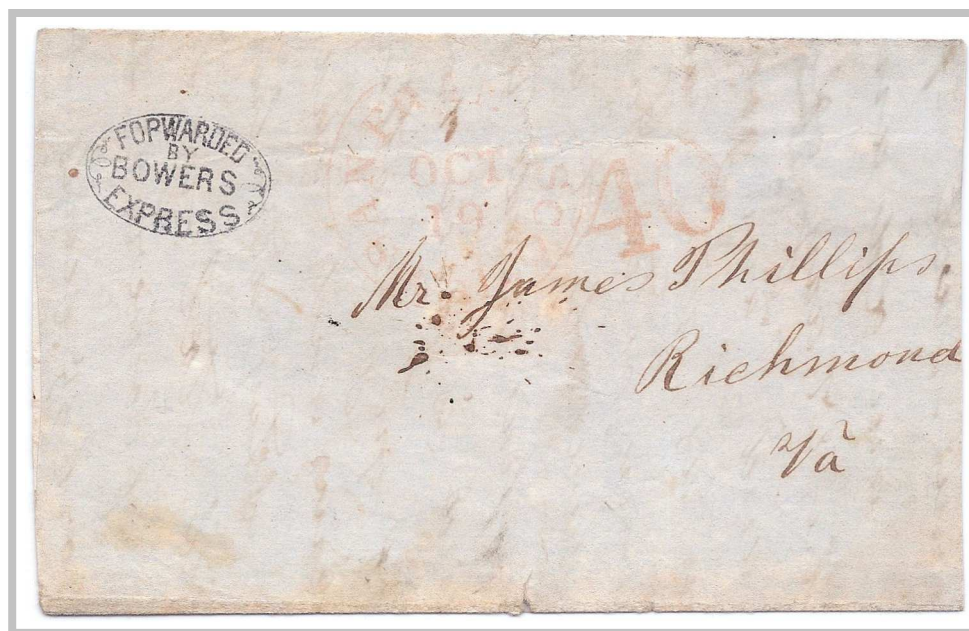 FOPWARDED
BY
BOWERS
EXPRESS
OCT
19
40
Mr. James Phillips,
Richmond
Va